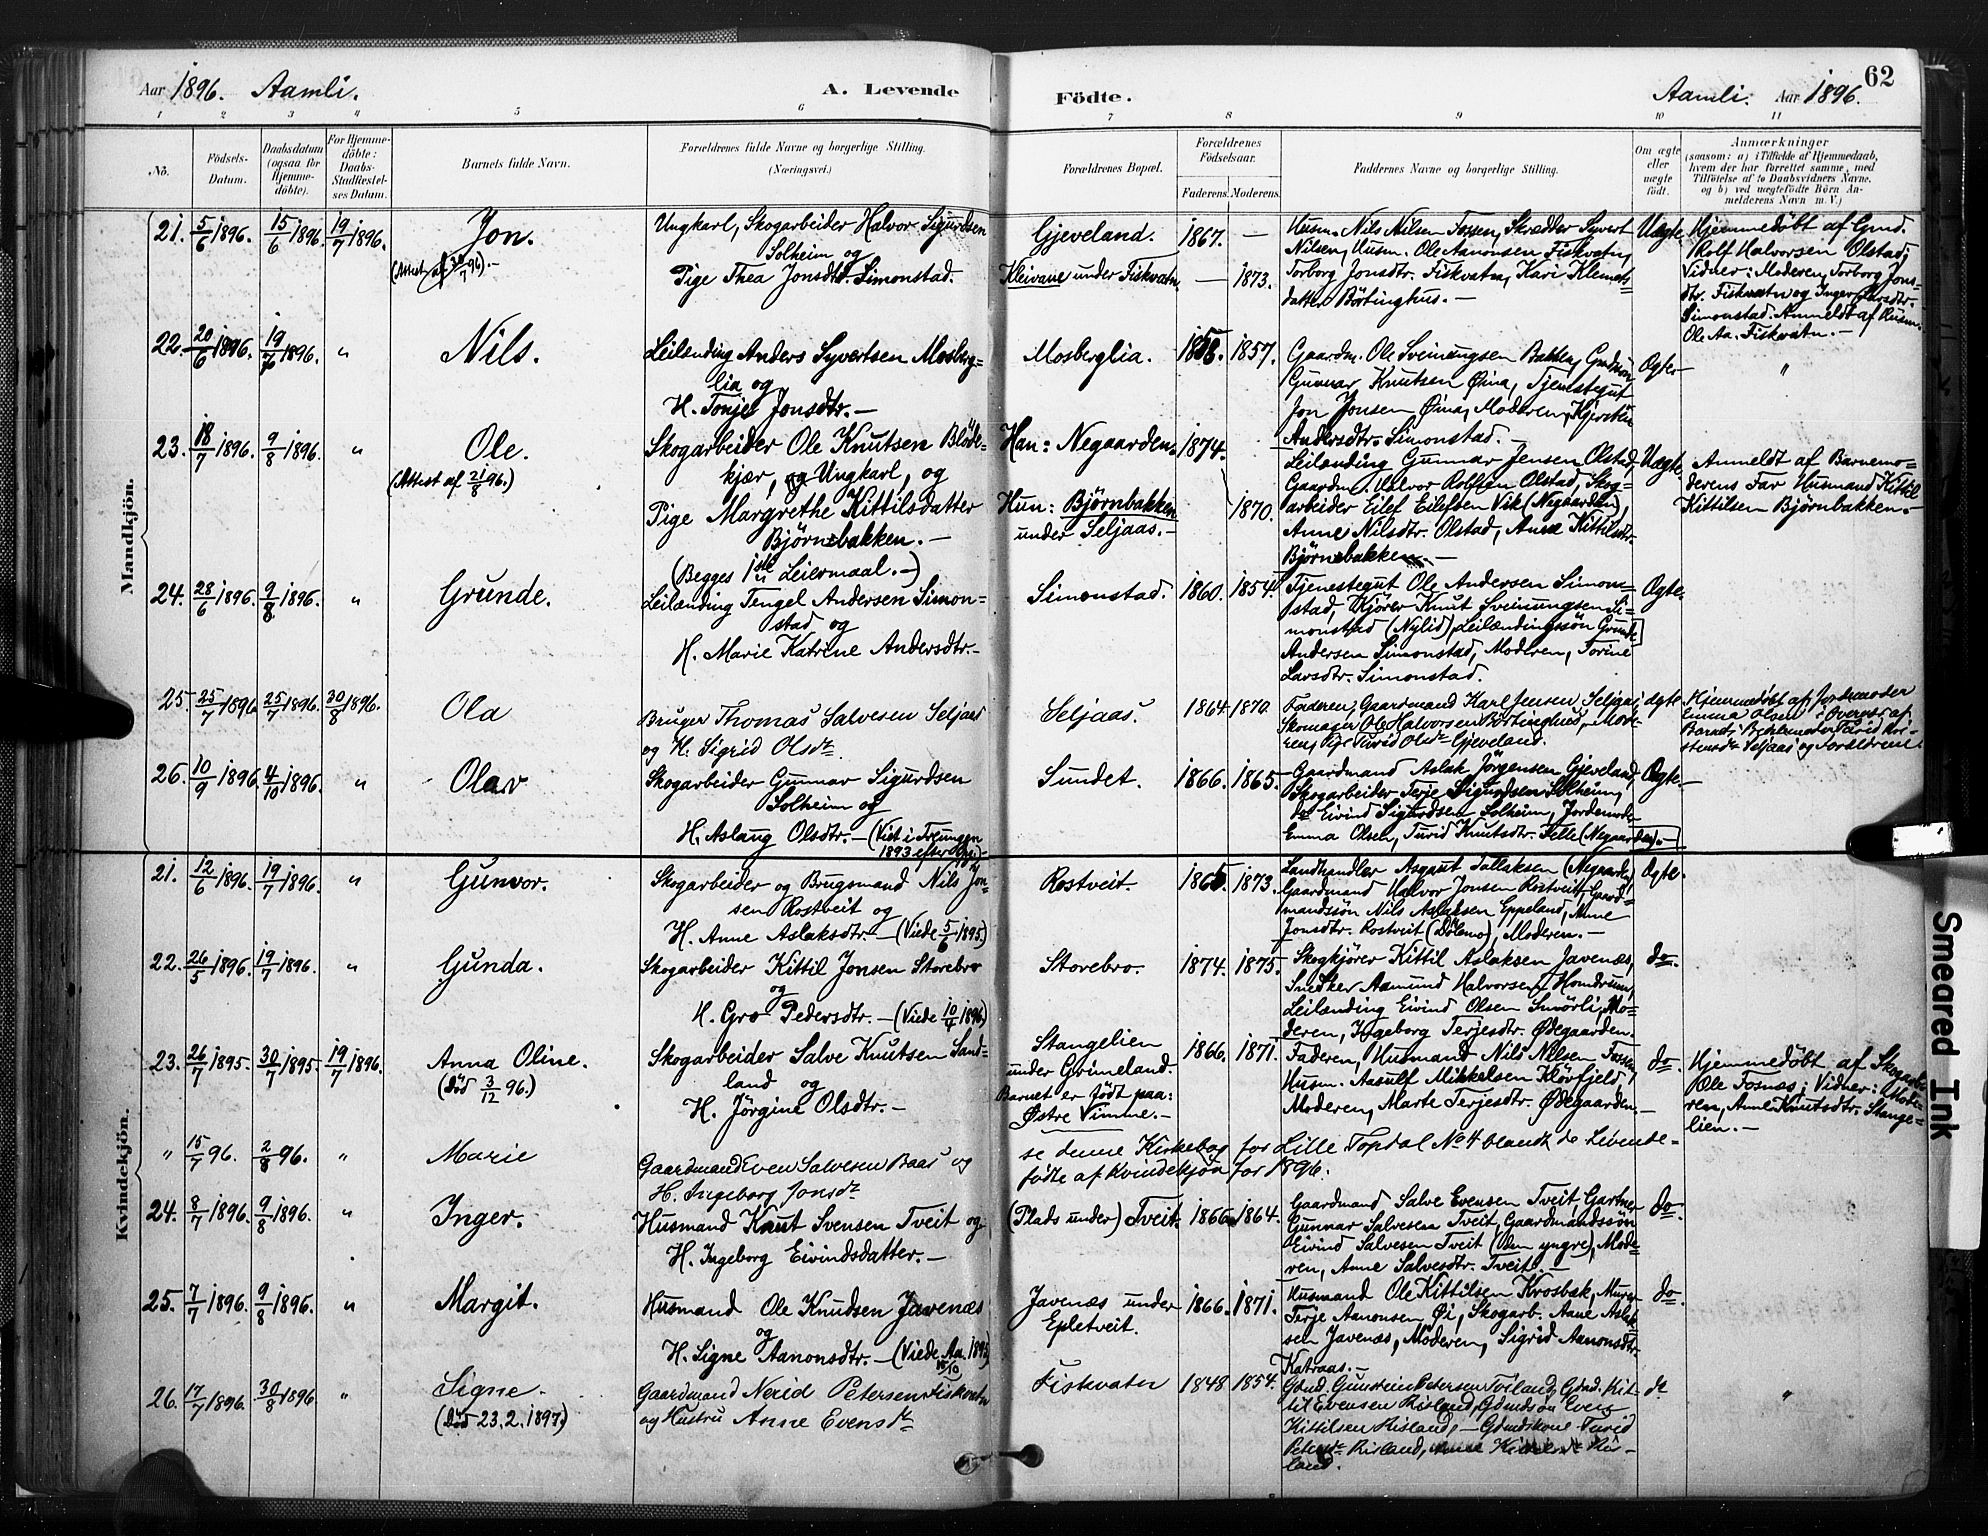 Aar 1896. Aamli.
A. Levende
Födte.
Aamli. Aar 1896.
62
1 2 3 4 5 6 7 8 9 10 11
No.
Födsels-
Datum.
Daabsdatum
(ogsaa for
Hjemme-
döbte).
For Hjemme-
döbte:
Daabs-
Stadfæstel-
ses Datum.
Barnets fulde Navn.
Forældrenes fulde Navne og borgerlige Stilling.
(Næringsvei.)
Forældrenes Bopæl.
Forældrenes
Födselsaar.
Faderens. Moderens.
Faddernes Navne og borgerlige Stilling.
Om ægte
eller
uægte
födt.
Anmærkninger
(saasom: a) i Tilfælde af Hjemmedaab,
hvem der har forrettet samme, med
Tilföielse af to Daabsvidners Navne,
og b) ved uægtefödte Börn An-
melderens Navn m. V.)
Mandkjön.
21. 5/6 1896. 15/6 1896. 19/7 1896.
Jon.
(Attest af 30/7 96).-
Ungkarl, Skogarbeider Halvor Sigurdsen
Solheim og
Pige Thea Jonsdtr. Simonstad.
Gjeveland.
Kleivane under Fiskvatn.
1867. —
— 1873.
Husm. Nils Nilsen Fossen, Skrædder Syvert
Nilsen, Husm. Ole Aanonsen Fiskvatn,
Torborg Jonsdtr. Fiskvatn, Kari Klemets-
datter Börtinghus. —
Uægte
Hjemmedöbt af Gmd.
Rolf Halvorsen Olstad;
Vidner: Moderen, Torborg Jons-
dtr. Fiskvatn og Inger Larsdtr.
Simonstad. Anmeldt af Husm.
Ole Aa. Fiskvatn. —
22. 20/6 1896. 19/7 1896. "
Nils.
Leilænding Anders Syvertsen Mosberg-
lia og
H. Tonje Jonsdtr. —
Mosberglia.
1858. 1857.
Gaardm. Ole Sveinungsen Bakken, Gmdsøn
Gunnar Knutsen Øina, Tjenestegut
Jon Jonsen Øina, Moderen, Kjerstin
Andersdtr. Simonstad. —
Ægte
"
23. 18/7 1896. 9/8 1896. "
Ole.
(Attest af 21/8 96.)
Skogarbeider Ole Knutsen Blöde-
kjær, Ungkarl, og
Pige Margrethe Kittilsdatter
Björnebakken. —
(Begges 1ste Leiermaal. —)
Han: Negaarden.
Hun: Björnbakken
under Seljaas. —
1874.
1870.
Leilænding Gunnar Jensen Olstad,
Gaardm. Halvor Rolfsen Olstad, Skog-
arbeider Eilef Eilefsen Vik (Negaarden),
Anne Nilsdtr. Olstad, Anne Kittilsdtr.
Björnebakken. —
Uægte
Anmeldt af Barnemo-
derens Far Husmand Kittil
Kittilsen Björnbakken. —
24. 28/6 1896. 9/8 1896. "
Grunde.
Leilænding Tengel Andersen Simon-
stad og
H. Marie Katrine Andersdtr. —
Simonstad.
1860. 1854.
Tjenestegut Ole Andersen Simon-
stad, Kjörer Knut Sveinungsen Si-
monstad (Nylid), Leilændingssön Grunde
Andersen Simonstad, Moderen, Torine
Larsdtr. Simonstad.
Ægte.
25. 25/7 1896. 25/7 1896. 30/8 1896.
Ola
Bruger Thomas Salvesen Seljaas
og H. Sigrid Olsdr
Seljaas.
1864. 1870.
Faderen, Gaardmand Karl Jensen Seljaas,
Skomager Ole Halvorsen Börtinghus, Mode-
ren, Pige Turid Olsdr Gjeveland.
ægte
Hjemmedöbt af Jordmoder
Emma Olsen i Overvær af
Barnets Turid
Seljaas og Forældrene
26. 10/9 1896. 4/10 1896. "
Olav
Skogarbeider Gunnar Sigurdsen
Solheim og
H. Aslaug Olsdtr. — (Viet i Treungen
1893 efter Opg.) —
Sundet.
1866. 1865.
Gaardmand Aslak Jörgensen Gjeveland,
Skogarbeider Terje Sigurdsen Solheim,
do Eivind Sigurdsen Solheim, Jordemoder
Emma Olsen, Turid Knutsdtr. Felle (Negaarden). —
Ægte.
Kvindekjön.
21. 12/6 1896. 19/7 1896. "
Gunvor.
Skogarbeider og Brugsmand Nils Jon-
sen Rostveit og
H. Anne Aslaksdtr. — (Viede 5/6 1895)
Rostveit.
1865. 1873.
Landhandler Asgaut Tallaksen (Negaarden)
Gaardmand Halvor Jonsen Rostveit, Gaard-
mandssön Nils Aslaksen Eppeland, Anne
Jonsdtr. Rostveit (Dölemo), Moderen. —
Ægte.
22. 26/5 1896. 19/7 1896. "
Gunda.
Skogarbeider Kittil Jonsen Storebro
og
H. Gro Pedersdtr. — (Viede 10/4 1896)
Storebro.
1874. 1875.
Skogkjörer Kittil Aslaksen Javenæs,
Snedker Aamund Halvorsen Homdrum,
Leilænding Eivind Olsen Smörli, Mo-
deren, Ingeborg Terjesdtr. Ødegaarden.
do.
23. 26/7 1895. 30/7 1895. 19/7 1896.
Anna Oline.
(död 3/12 96.)
Skogarbeider Salve Knutsen Sand-
land og
H. Jörgine Olsdtr. —
Stangelien
under Grimeland.
Barnet er födt paa:
Östre Vimme. —
1866. 1871.
Faderen, Husmand Nils Nilsen Fossen,
Husm. Aasulf Mikkelsen Klörfjeld,
Moderen, Marte Terjesdtr. Ødegaarden. —
do.
Hjemmedöbt af Skogarb.
Ole Fosnæs; Vidner: Mode-
ren, Anne Knutsdtr. Stange-
lien. —
" 15/7 96. 2/8 96. "
Marie
Gaardmand Even Salvesen Baas og
H. Ingeborg Jonsdr
se denne Kirkebog for Lille Topdal No 4 blandt de Levende-
födte af Kvindekjön for 1896.
24. 8/7 1896. 9/8 1896. "
Inger.
Husmand Knut Svensen Tveit og
H. Ingeborg Eivindsdatter. —
(Plads under) Tveit.
1866. 1864.
Gaardmand Salve Evensen Tveit, Gartner
Gunnar Salvesen Tveit, Gaardmandssön
Eivind Salvesen Tveit (den yngre), Mode-
ren, Anne Salvesdtr. Tveit. —
do.
25. 7/7 1896. 9/8 1896. "
Margit.
Husmand Ole Knudsen Javenæs
og
H. Signe Aanonsdtr. — (Viede Aa.
Javenæs under
Epletveit.
1866. 1871.
Husmand Ole Kittilsen Krosbak, Murer
Terje Aanonsen Öi, Skogarb. Aane Aslak-
sen Javenæs, Moderen, Sigrid Aanonsdtr.
Katraas. —
do.
26. 17/7 1896. 30/8 1896 "
Signe.
(död 23.2.1897.)
Gaardmand Nerid Petersen Fiskvatn
og Hustru Anne Evensdr
Fiskvatn
1848. 1854.
Gdmd. Gunstein Petersen Tviland, Gdmd. Kit-
til Evensen Risland, Gdmdsön Even
Kittilsen Risland, — Gdmdskone Turid
Petersdr Risland, Anne Kittilsdr Ris-
land.
do
"
Smeared Ink